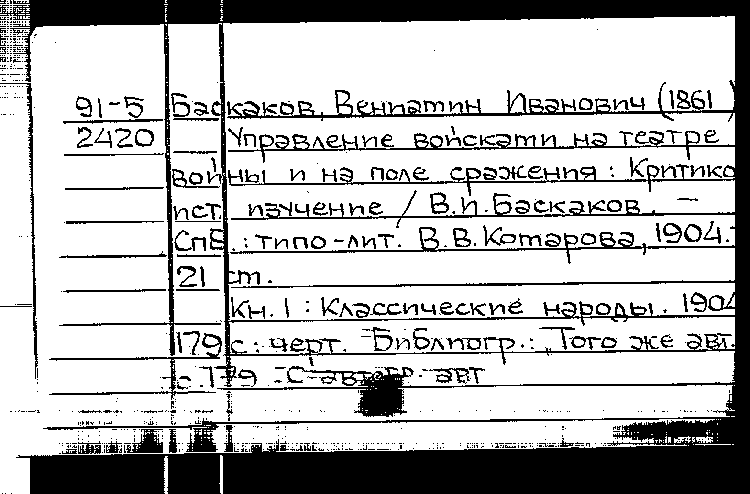 91-5 Баскаков, Вениамин Иванович (1861 )
2420 Управление войсками на театре
войны и на поле сражения: Критико
ист. изучение / В.И. Баскаков. –
СпБ.: типо-лит. В.В. Комарова, 1904.
21 см.
Кн. 1: Классические народы. 1904
179 с.: черт. – Библиогр.: „Того же авт.
с. 179 – С автогр. авт